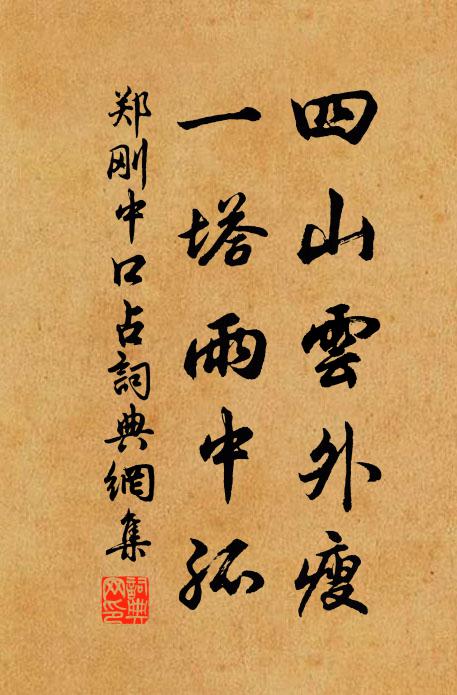 四山雲外瘦
一塔雨中孤
郑刚中口占詞典網集
詞典
网印